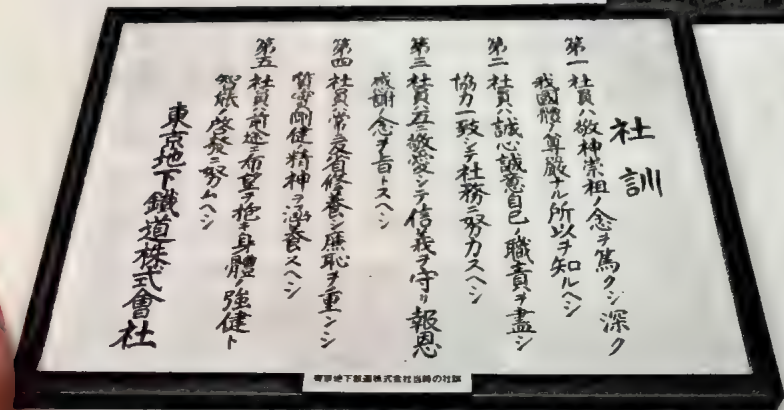 社訓
第一 社員ハ敬神崇祖ノ念ヲ篤クシ深ク
我國體ノ尊嚴ナル所以ヲ知ルヘシ
第二 社員ハ誠心誠意自己ノ職責ヲ盡シ
協力一致シテ社務ニ努力スヘシ
第三 社員互ニ敬愛シテ信義ヲ守リ報恩
感謝ノ念ヲ旨トスヘシ
第四 社員ハ常ニ反省修養シ廉恥ヲ重ンシ
質實剛健ノ精神ヲ涵養スヘシ
第五 社員ハ前途ノ希望ヲ抱キ身體ノ強健ト
智能ノ啓發ニ努ムヘシ
東京地下鐵道株式會社
東京地下鉄道株式会社当時の社訓